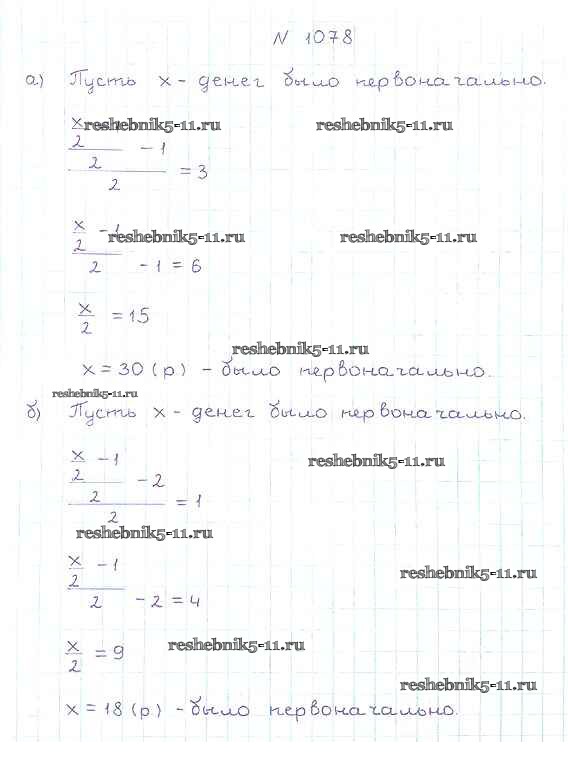 N 1078
а) Пусть x - денег было первоначально.
x reshebnik5-11.ru reshebnik5-11.ru
2 - 1
2 = 3
2
x - 1
2 reshebnik5-11.ru reshebnik5-11.ru
2 - 1 = 6
x
2 = 15
reshebnik5-11.ru
x = 30 (р) - было первоначально.
reshebnik5-11.ru
б) Пусть x - денег было первоначально.
x - 1 reshebnik5-11.ru
2
2 - 2
2 = 1
reshebnik5-11.ru
x - 1
2 reshebnik5-11.ru
2 - 2 = 4
x
2 = 9 reshebnik5-11.ru
reshebnik5-11.ru
x = 18 (р) - было первоначально.